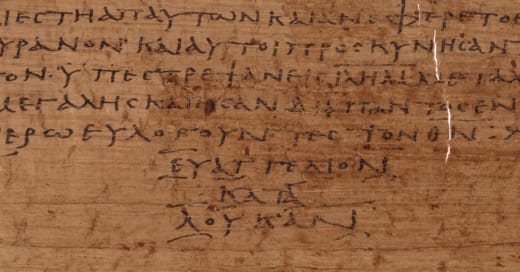 ΙΕϹΤΗΑΠΑΥΤΩΝΚΑΙΑΝΕΦΕΡΕΤΟΕ
ΥΡΑΝΟΝ·ΚΑΙΑΥΤΟΙΠΡΟϹΚΥΝΗϹΑΝΤ
ΤΟΝ·ΥΠΕϹΤΡΕΨΑΝΕΙϹ ΜΕΤΑ
ΜΕΓΑΛΗϹΚΑΙΗϹΑΝΔΙΑΠΑΝΤΟϹΕΝ
ΕΡΩΕΥΛΟΓΟΥΝΤΕϹΤΟΝΘ̅Ν̅·
ΕΥΑΓΓΕΛΙΟΝ
ΚΑΤΑ
ΛΟΥΚΑΝ